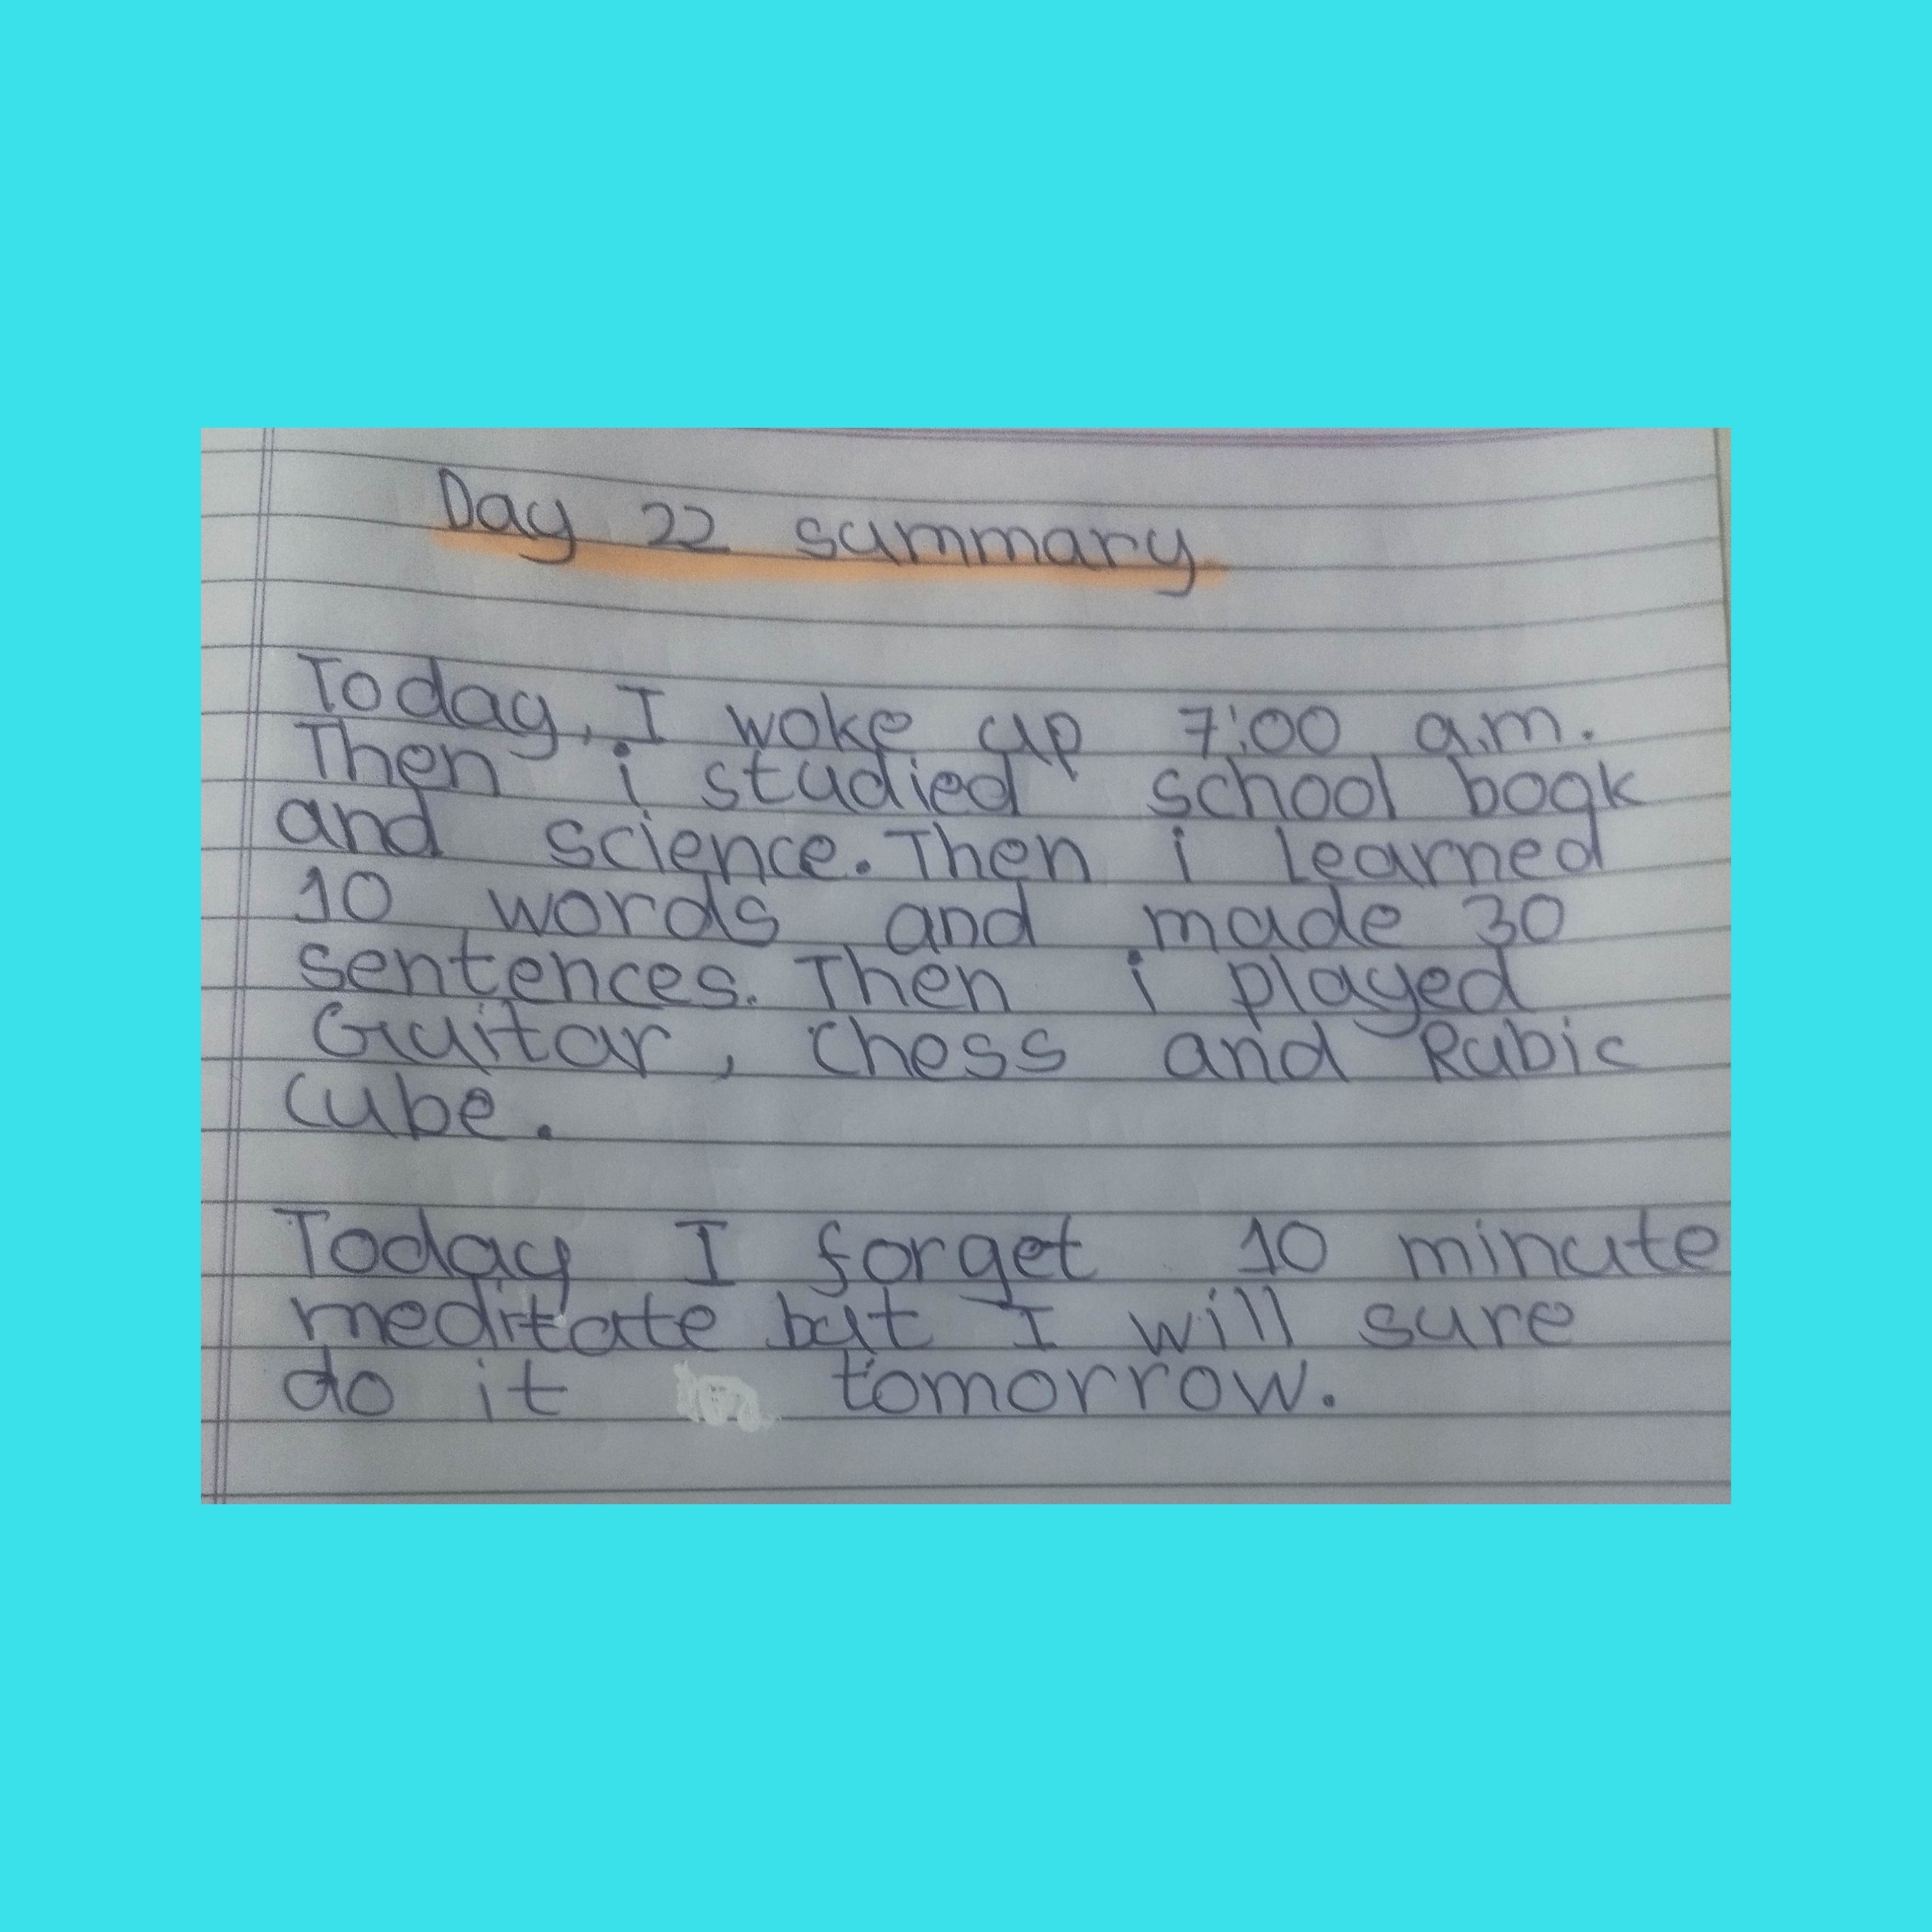 Day 22 summary
Today, I woke up 7:00 a.m.
Then i studied school book
and science. Then i learned
10 words and made 30
sentences. Then i played
Guitar, chess and Rubic
cube.
Today I forget 10 minute
meditate but I will sure
do it tomorrow.